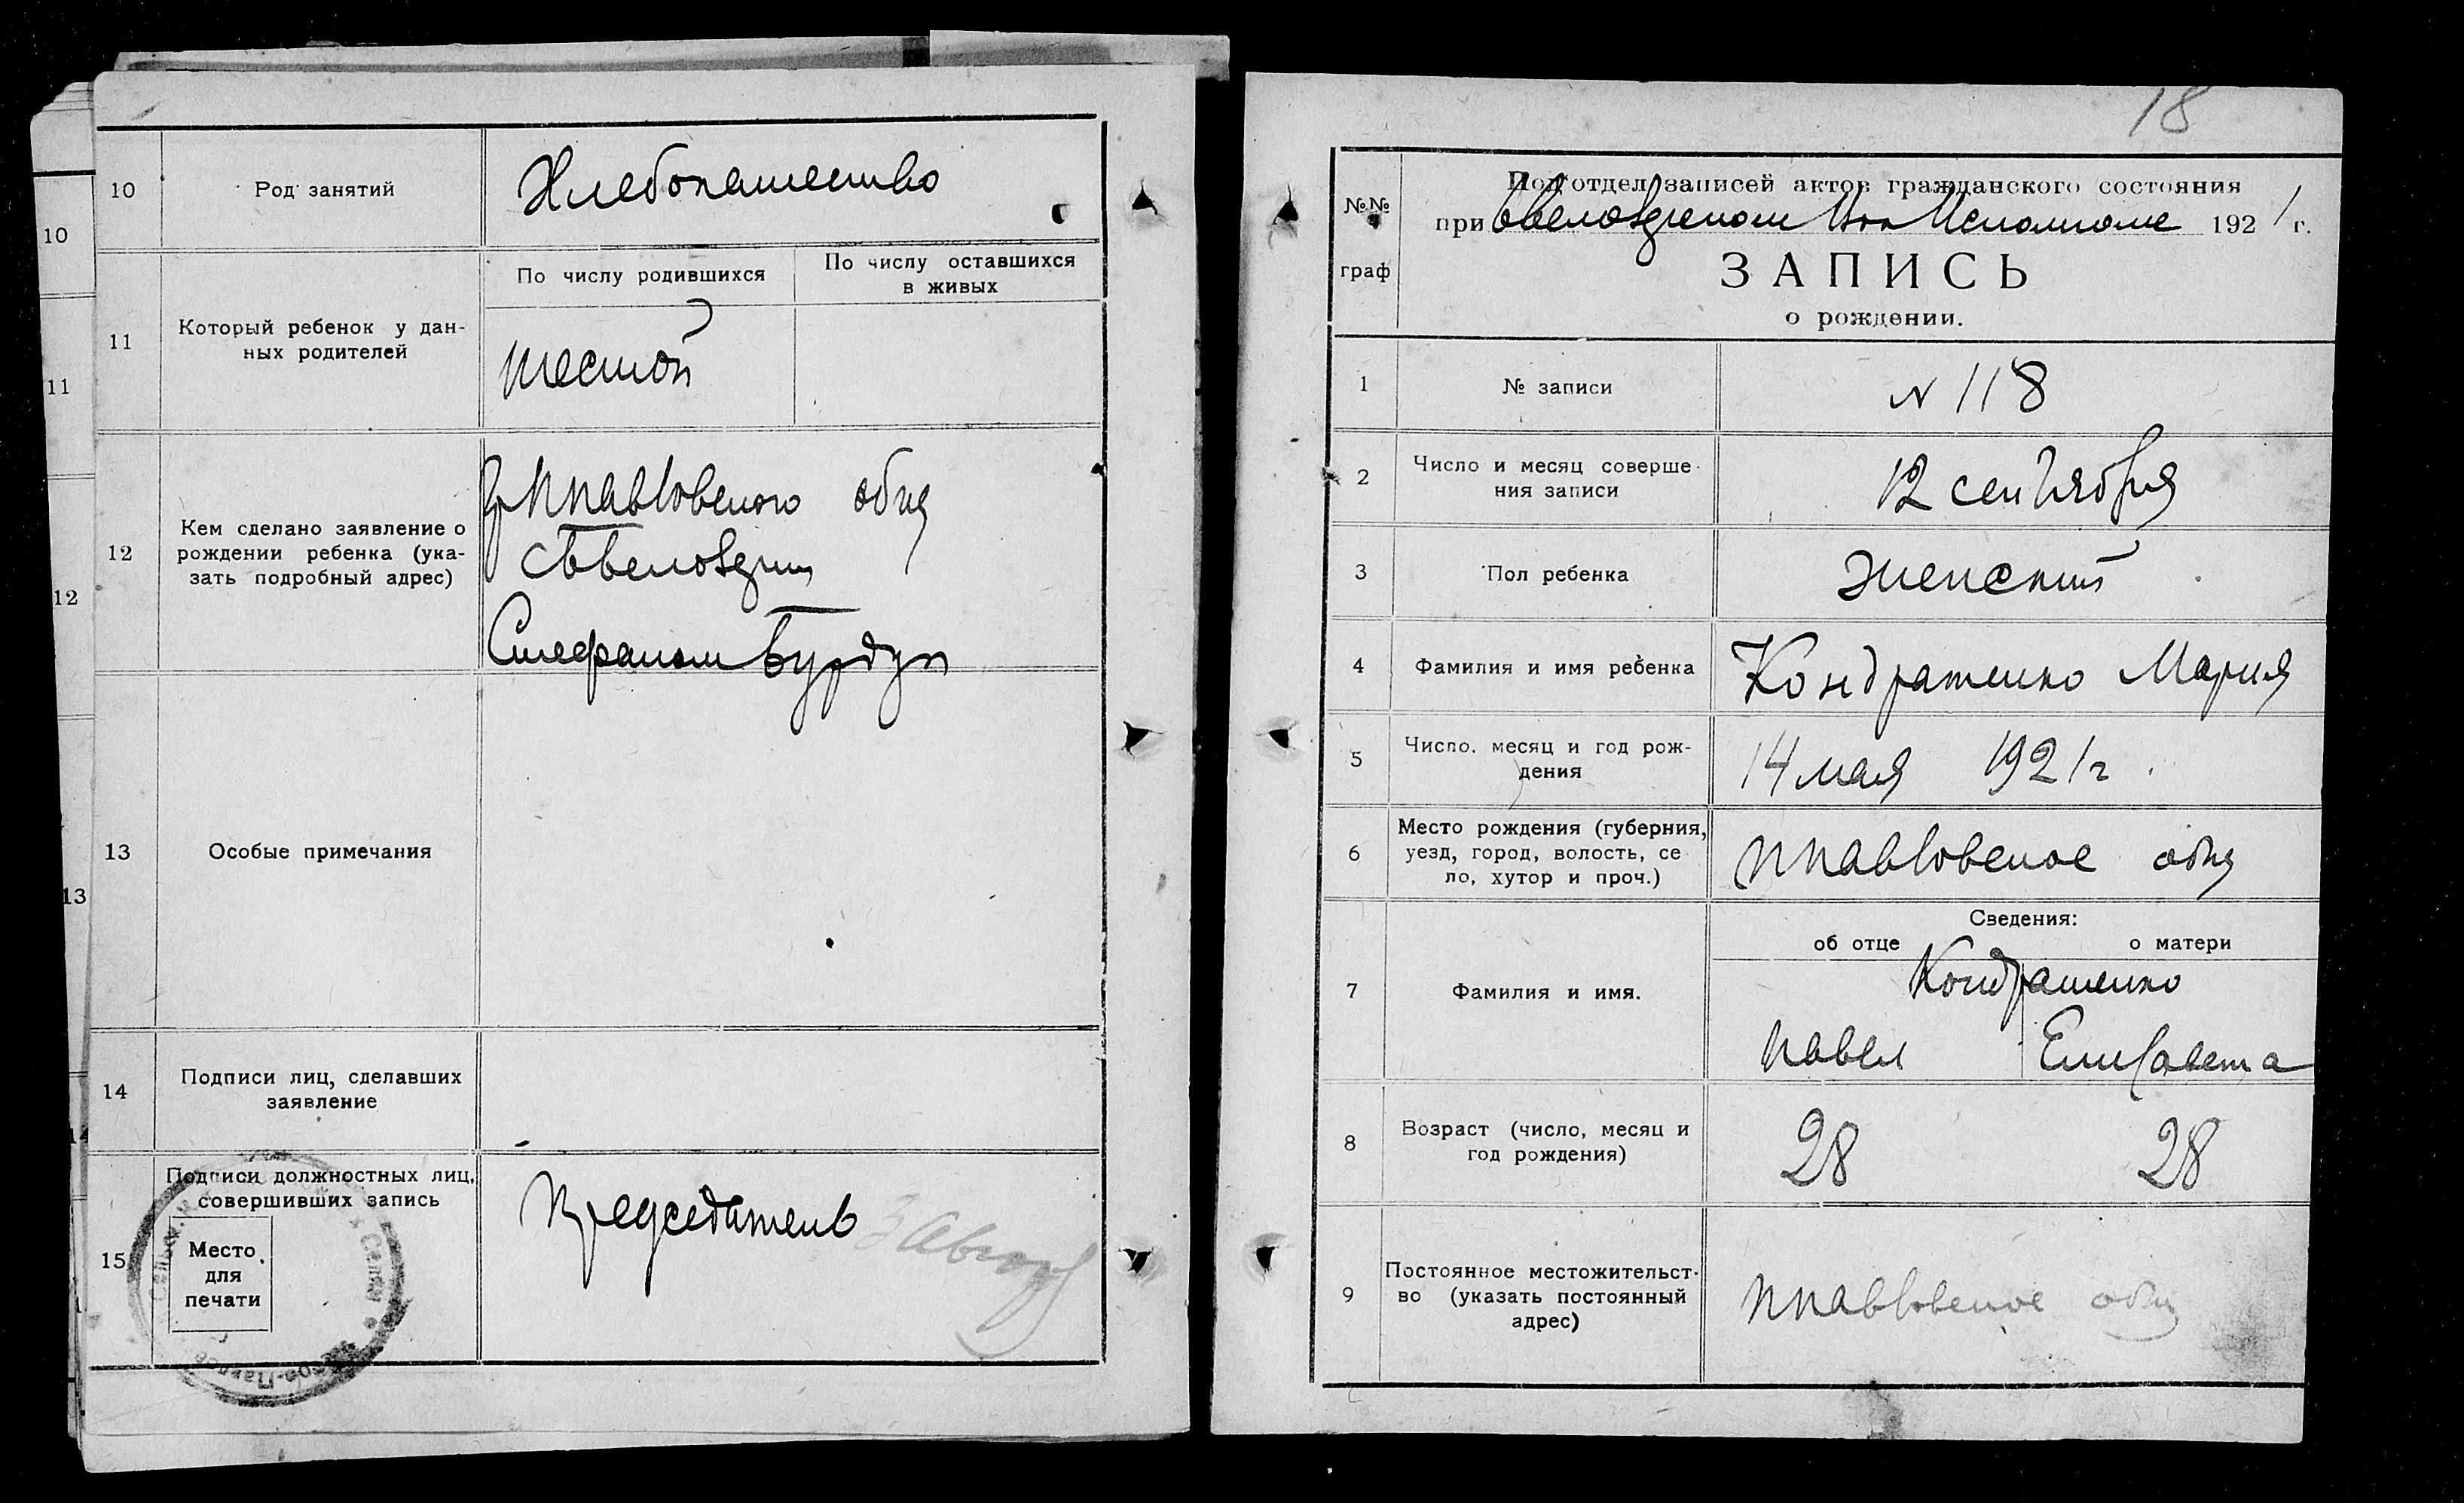 10
Род занятий
Хлебопашество
11
Который ребенок у дан-
ных родителей
По числу родившихся
По числу оставшихся
в живых
шестой
12
Кем сделано заявление о
рождении ребенка (ука-
зать подробный адрес)
Стефаном Бурдун
13
Особые примечания
14
Подписи лиц, сделавших
заявление
15
Подписи должностных лиц,
совершивших запись
Место
для
печати
Председатель
10
11
12
13
18
№№
граф
Подотдел записей актов гражданского состояния
при 1921 г.
ЗАПИСЬ
о рождении.
1
№ записи
N 118
2
Число и месяц соверше-
ния записи
12 сентября
3
Пол ребенка
Женский
4
Фамилия и имя ребенка
Кондратенко Мария
5
Число, месяц и год рож-
дения
14 мая 1921 г.
6
Место рождения (губерния,
уезд, город, волость, се
ло, хутор и проч.)
7
Фамилия и имя.
Сведения:
об отце
о матери
Кондратенко
Павел
Елисавета
8
Возраст (число, месяц и
год рождения)
28
28
9
Постоянное местожительст-
во (указать постоянный
адрес)